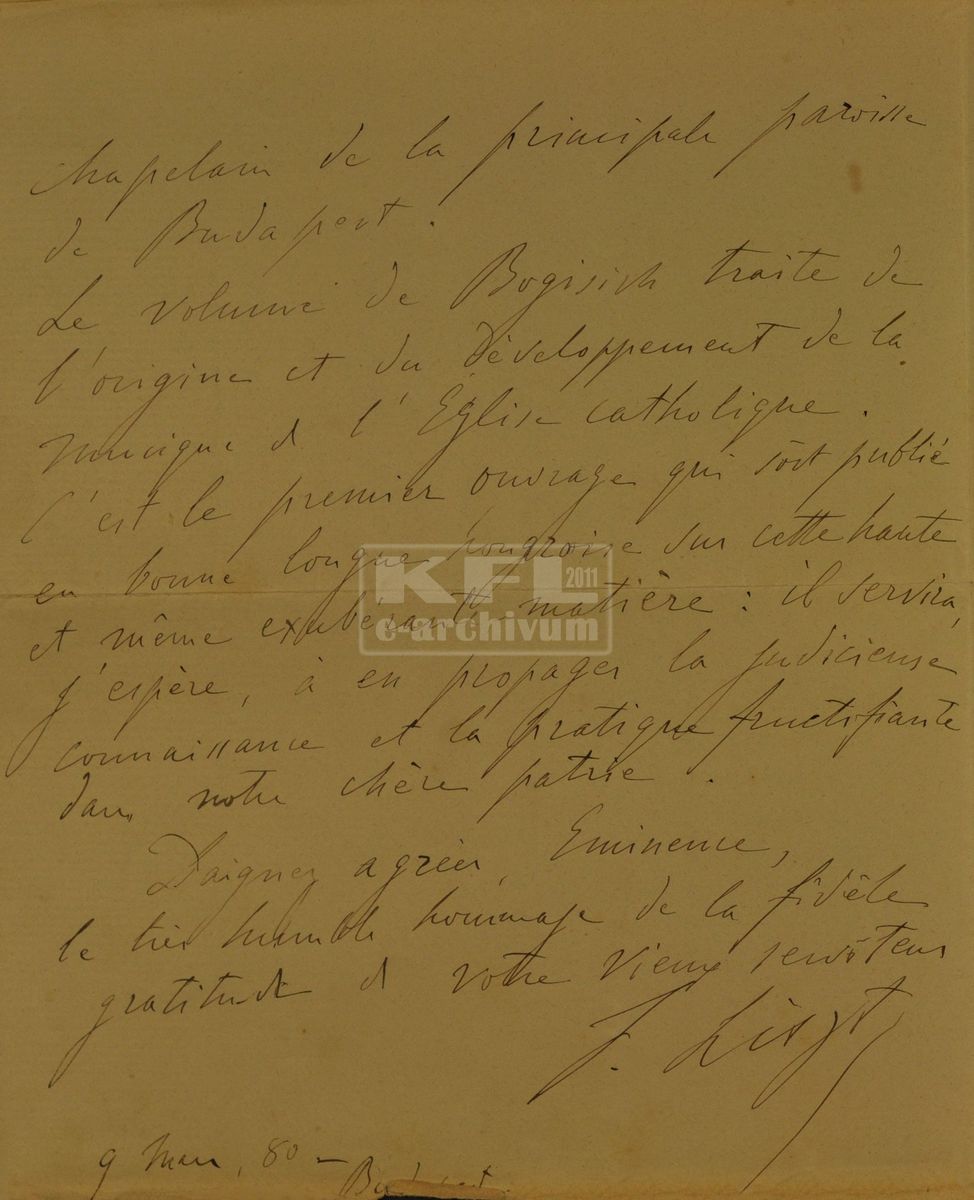 chapelain de la principale paroisse
de Budapest.
Le volume de Bogisich traite de
l'origine et du développement de la
musique de l'Eglise catholique.
C'est le premier ouvrage qui soit publié
en bonne langue hongroise sur cette haute
et même exubérante matière : il servira,
j'espère, à en propager la judicieuse
connaissance et la pratique fructifiante
dans notre chère patrie.
Daignez agréer, Eminence,
le très humble hommage de la fidèle
gratitude de votre vieux serviteur
F. Liszt
9 Mars, 80 –
Budapest.
KFL 2011
e-archivum